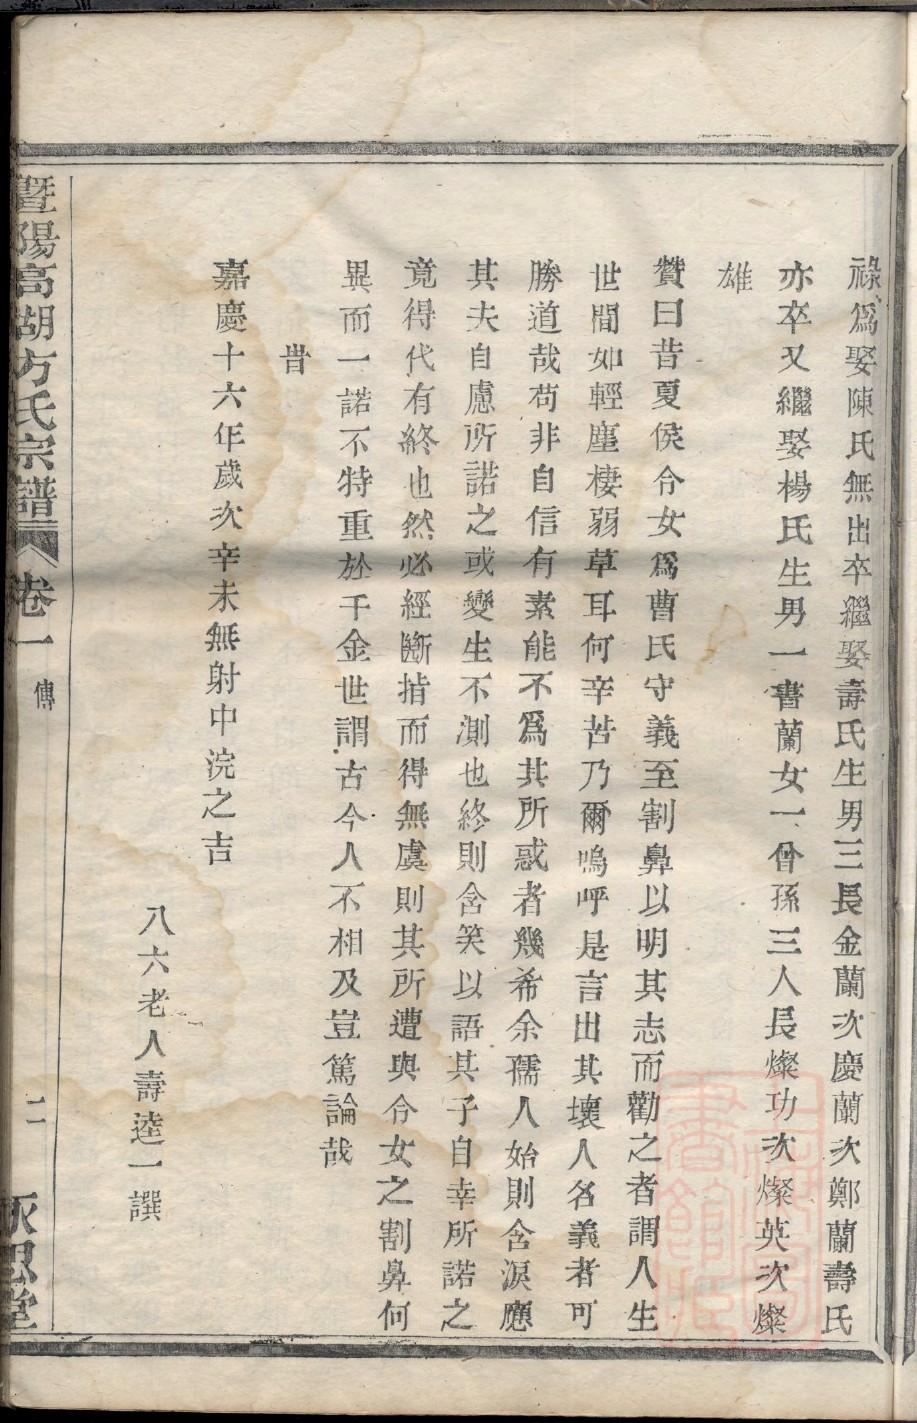 祿爲娶陳氏無出卒繼娶壽氏生男三長金蘭次慶蘭次鄭蘭壽氏
亦卒又繼娶楊氏生男一書蘭女一曾孫三人長燦功次燦英次燦
雄
贊曰昔夏侯令女爲曹氏守義至割鼻以明其志而勸之者謂人生
世間如輕塵棲弱草耳何辛苦乃爾嗚呼是言出其壞人名義者可
勝道哉苟非自信有素能不爲其所惑者幾希余孺人始則含淚應
其夫自慮所諾之或變生不測也終則含笑以語其子自幸所諾之
竟得代有終也然必經斷指而得無虞則其所遭與令女之割鼻何
異而一諾不特重於千金世謂古今人不相及豈篤論哉
旹
嘉慶十六年歲次辛未無射中浣之吉
八六老人壽逵一譔
暨陽高湖方氏宗譜 卷一 傳 二 永思堂